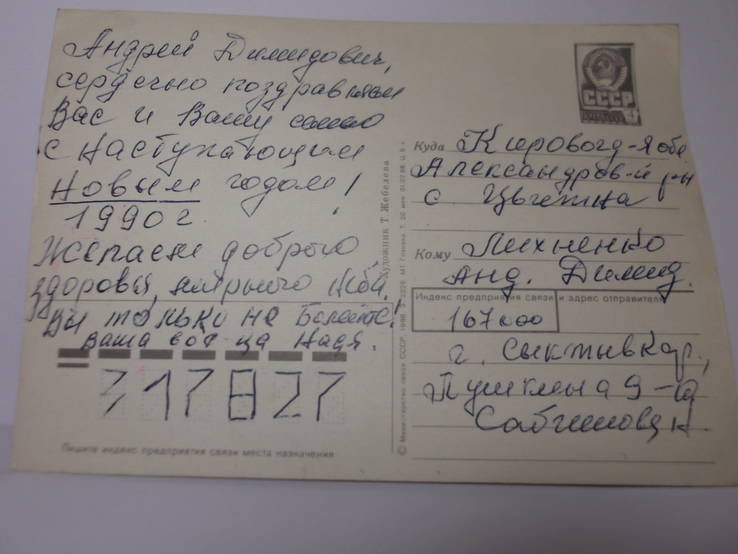 Андрей Димидович,
сердечно поздравляем
Вас и Вашу семью
с Наступающим
Новым годом!
1990 г.
Желаем доброго
здоровья, мирного неба.
Вы только не болейте!
Ваша сот-ца Надя.
317827
Пишите индекс предприятия связи места назначения
Художник Т. Жебелева
© Министерство связи СССР, 1988.
СССР
Куда Кировогд-я обл
Александров-й р-н
с. Цветна
Кому Лихненко
Анд. Димид.
Индекс предприятия связи и адрес отправителя
167000
г. Сыктывкар,
Пушкина 9-